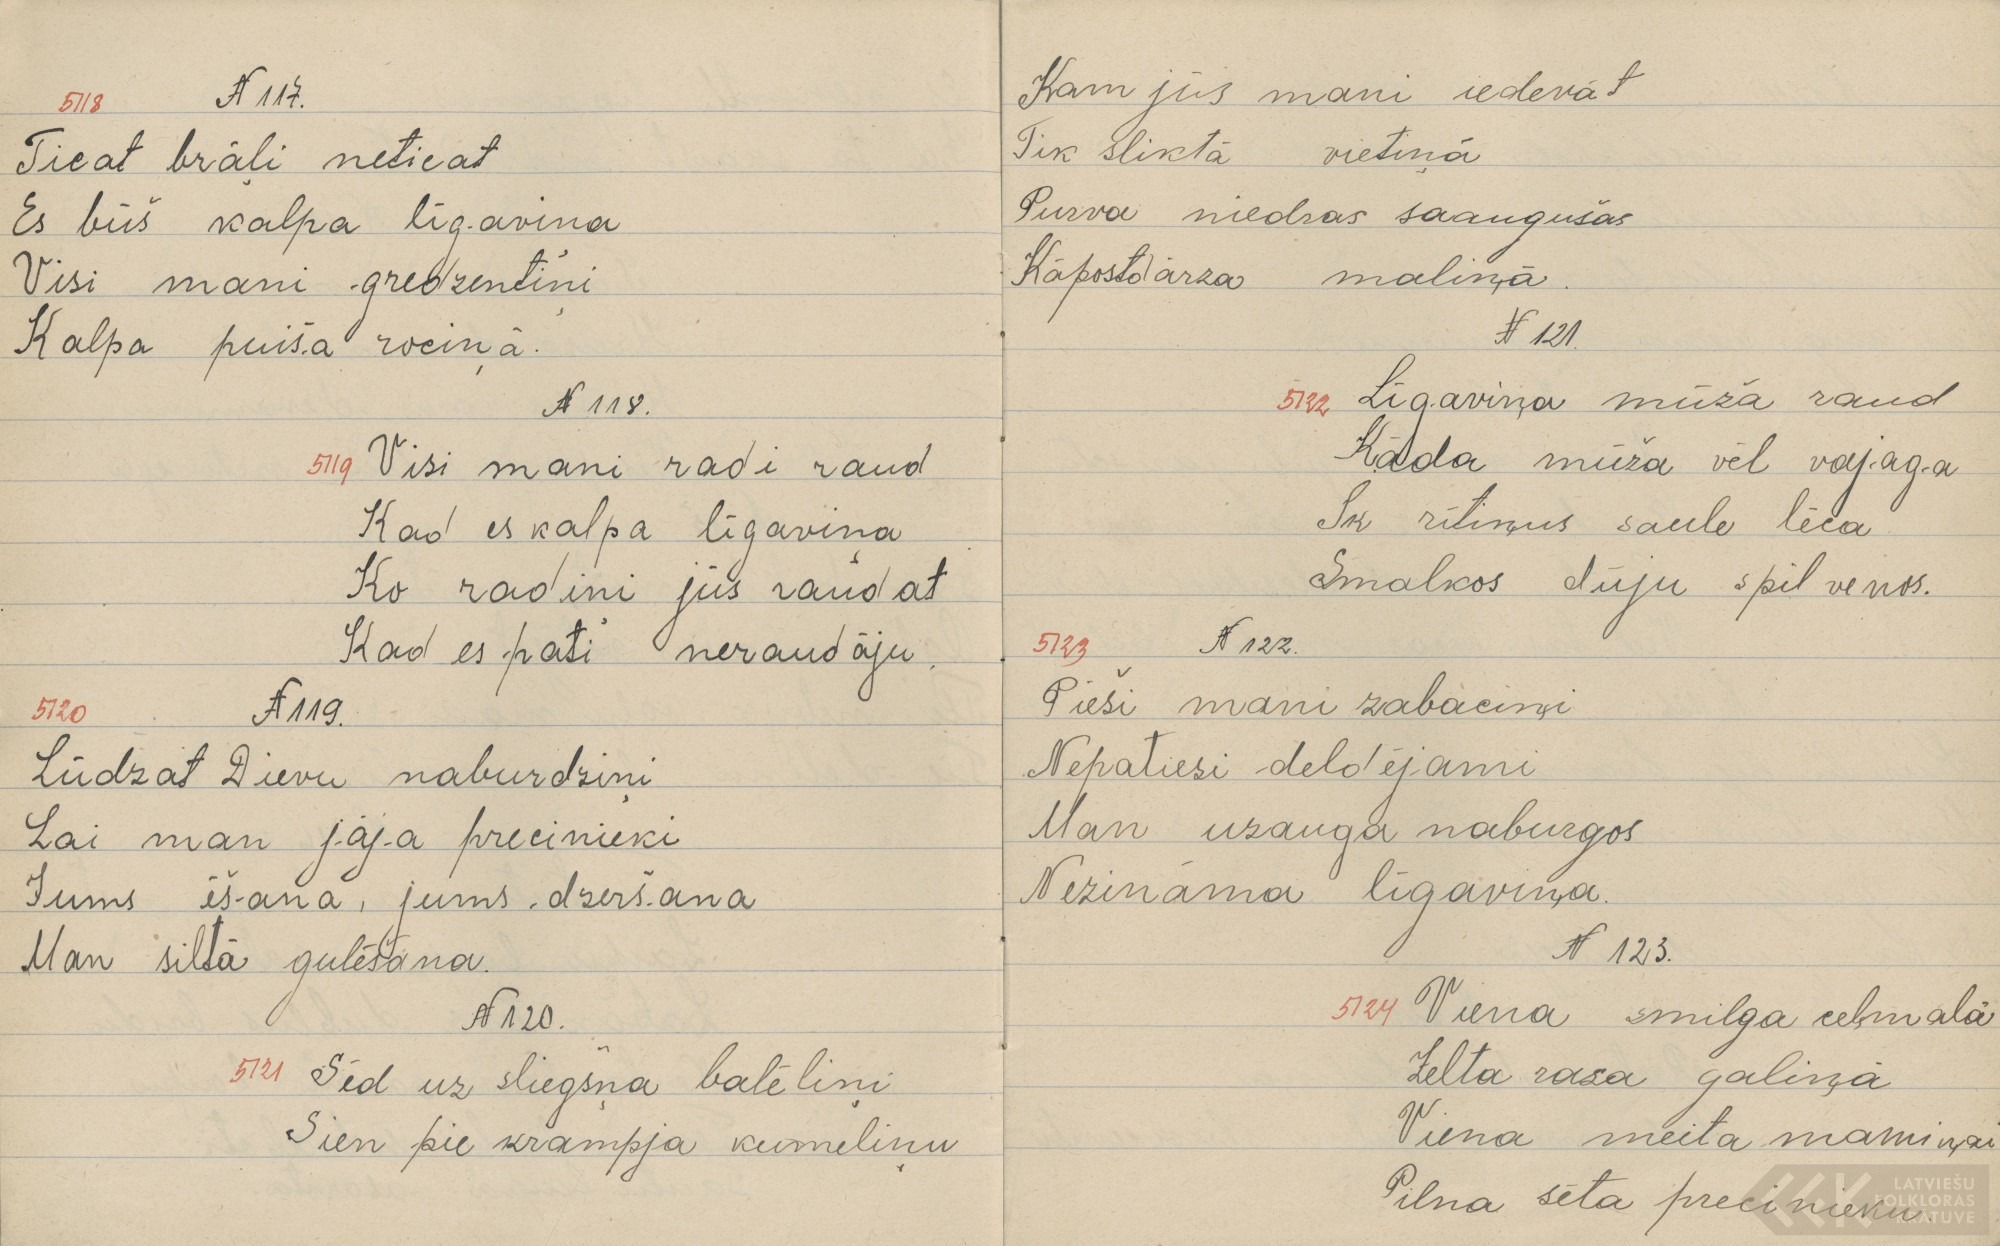 5118 № 117.
Ticat brāļi neticat
Es būš kalpa līgaviņa
Visi mani gredzentiņi
Kalpa puiša rociņā.
№ 118.
5119 Visi mani radi raud
Kad es kalpa līgaviņa
Ko radiņi jūs raudat
Kad es pati neraudāju.
5120 № 119.
Lūdzat Dievu naburdziņi
Lai man jāj-a precinieki
Jums ēš-ana, jums dzerš-ana
Man siltā gulēšana.
№ 120.
5121 Sēd uz sliegšņa balēliņi
Sien pie krampja kumeliņu
Kam jūs mani iedevāt
Tik sliktā vietiņā
Purva niedras saaugušas
Kāpostdārza maliņā.
№ 121.
5122 Līgaviņa mūžā raud
Kāda mūža vēl vajag-a
Ik rītiņus saule lēca
Smalkos dūju spilvenos.
5123 № 122.
Pieši mani zabāciņi
Nepatiesi deldējami
Man uzauga naburgos
Nezināma līgaviņa.
№ 123.
5124 Viena smilga ceļmalā
Zelta rasa galiņā
Viena meita mamiņai
Pilna sēta precinieku.
LATVIEŠU
FOLKLORAS
KRĀTUVE